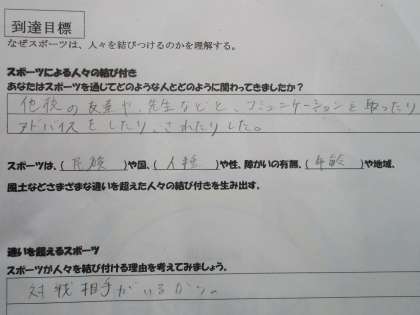 到達目標
なぜスポーツは、人々を結びつけるのかを理解する。
スポーツによる人々の結び付き
あなたはスポーツを通じてどのような人とどのように関わってきましたか？
他校の友達や、先生などと、コミュニケーションを取ったり
アドバイスをしたり、されたりした。
スポーツは、( 民族 )や国、( 人種 )や性、障がいの有無、( 年齢 )や地域、
風土などさまざまな違いを超えた人々の結び付きを生み出す。
違いを超えるスポーツ
スポーツが人々を結び付ける理由を考えてみましょう。
対戦相手がいるから。